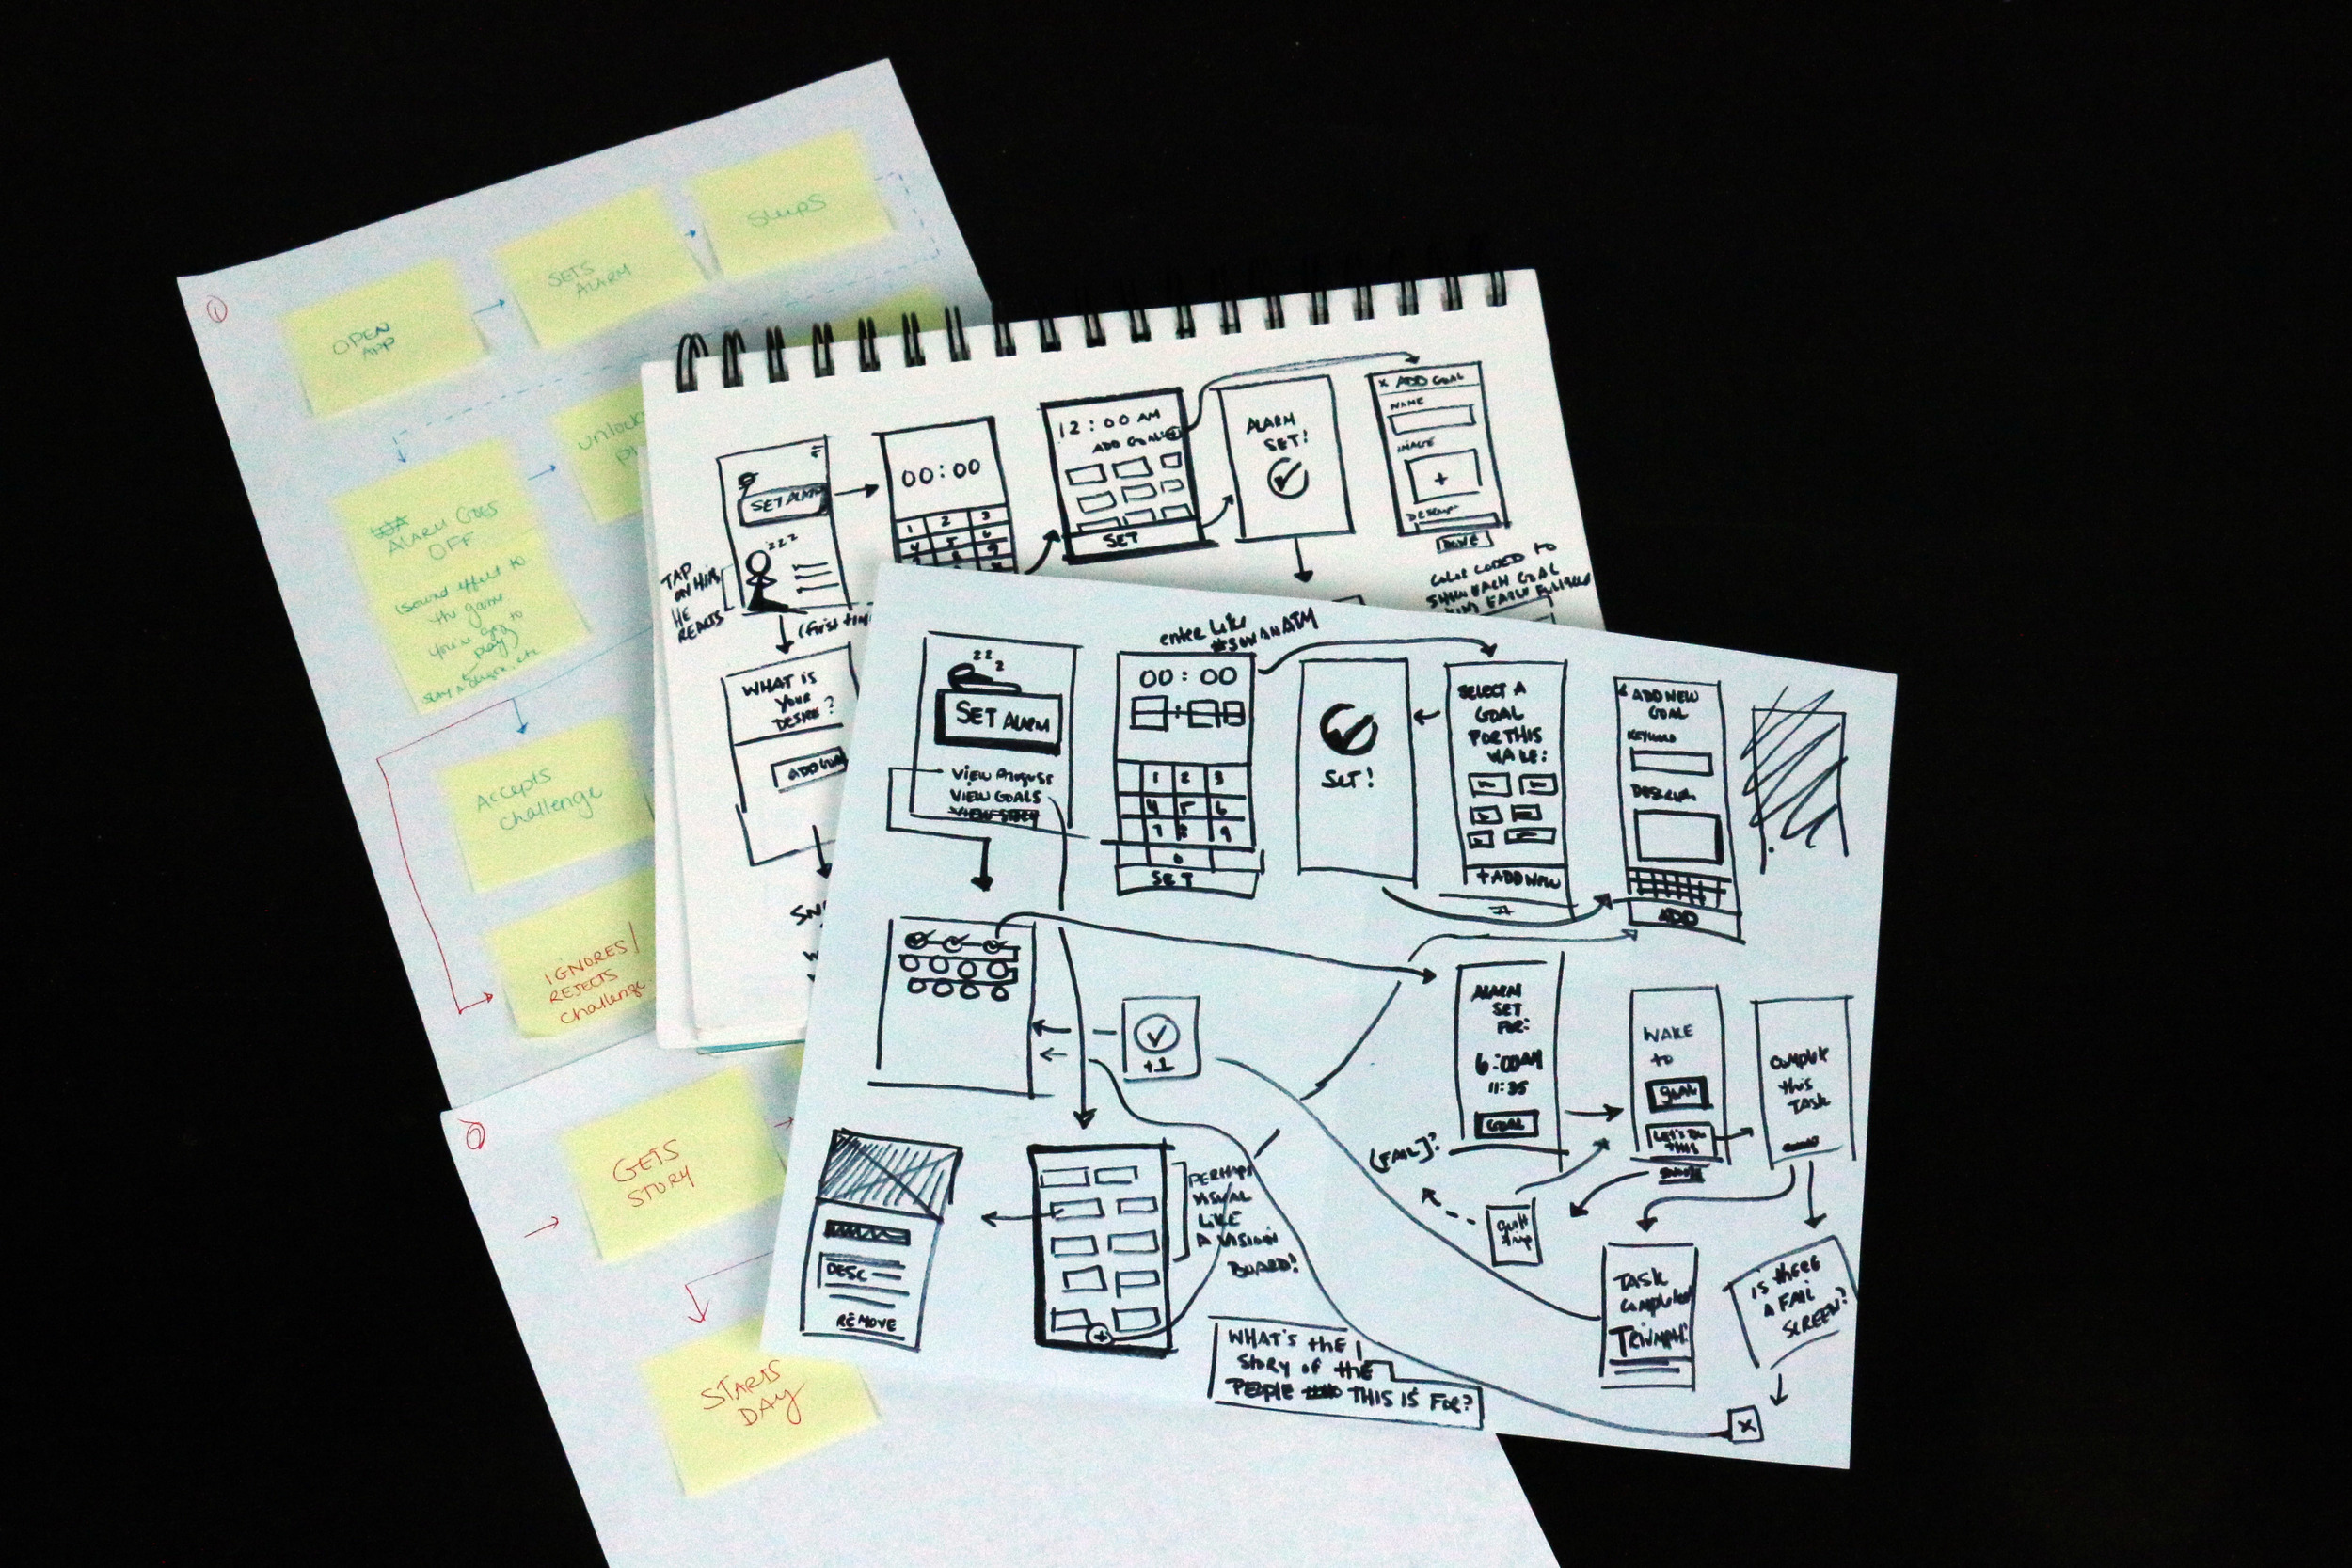 1
OPEN
APP
SETS
ALARM
SLEEPS
ALARM GOES
OFF
(sound effect to
the game
you're
play)
Unlock
Accepts
challenge
IGNORES/
REJECTS
challenge
2
GETS
STORY
STARTS
DAY
SET ALARM
zzz
TAP
ON HIM
HE
REACTS
(first
00:00
1 2 3
4 5 6
12:00 AM
ADD GOAL +
SET
ALARM
SET!
X ADD GOAL
NAME
IMAGE
+
DESCRIPT
DONE
COLOR CODED TO
SHOW EACH GOAL
WHAT IS
YOUR
DESIRE?
zzz
SET ALARM
VIEW PROGRESS
VIEW GOALS
VIEW STORY
enter like
ON AN ATM
00:00
1 2 3
4 5 6
7 8 9
0
SET
SET!
SELECT A
GOAL
FOR THIS
WAKE:
+ ADD NEW
ADD NEW
GOAL
KEYWORD
ADD
+1
ALARM
SET
FOR:
6:00AM
11:35
GOAL
WAKE
to
goal
LET'S DO
THIS
snooze
Complete
this
TASK
(FAIL)?
guilt
trip
TASK
Completed
TRIUMPH!
IS THERE
A FAIL
SCREEN?
X
DESC
REMOVE
PERHAPS
VISUAL
LIKE
A VISION
BOARD?
+
WHAT'S THE
STORY OF THE
PEOPLE THIS IS FOR?